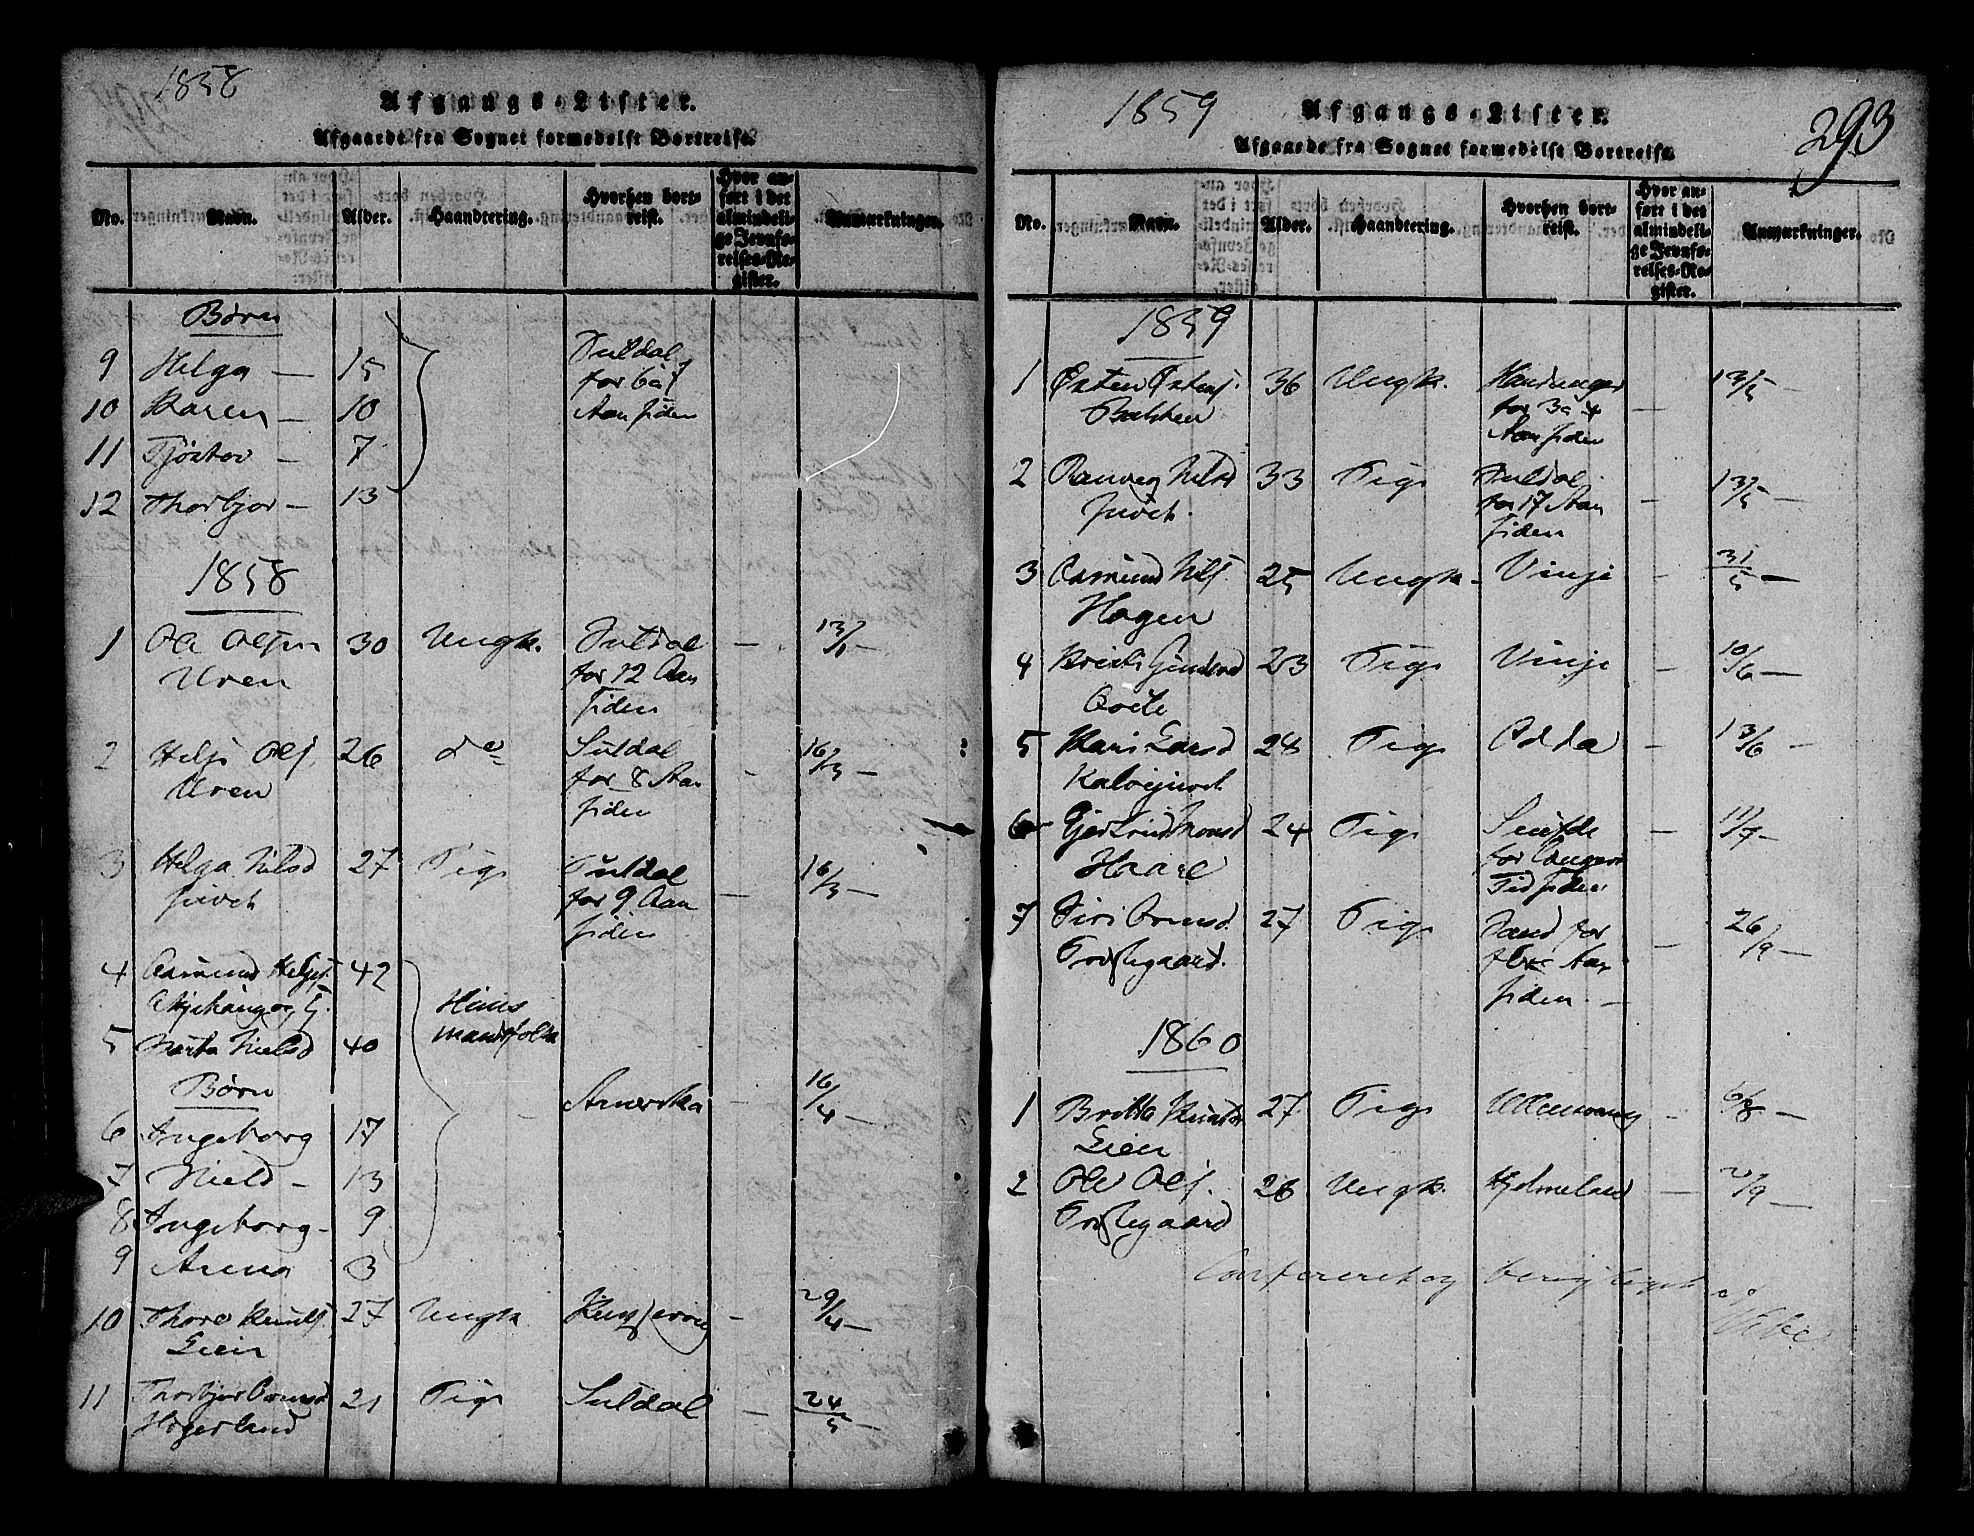 1858
Afgangs-Lister.
Afgaarde fra Sognet formedelst Bortreise.
No. Navn. Alder. Haandtering. Hvorhen bortreist. Hvor anført i det almindelige Jevnførelses-Register. Anmærkninger.
Børn
9 Helga — 15 Suldal
for 6 a 7
Aar siden
10 Karen — 10
11 Tjøstov — 7
12 Thorbjor — 13
1858
1 Ole Olsen 30 Ungk. Suldal — 13/1 —
Uren for 12 Aar
siden
2 Helje Ols. 26 do Suldal — 16/3 —
Uren for 8 Aar
siden
3 Helga Nilsd 27 Pige Suldal — 16/3 —
Juvet for 9 Aar
siden
4 Aasmund Heljes. 42 Huus
mandsfolk
5 Marta Nielsd 40
Børn
Amerika — 16/4 —
6 Ingeborg 17
7 Nield — 13
8 Ingeborg — 9
9 Anna 3
10 Thore Knuts. 27 Ungk. — 29/4 —
Lien
11 Thorbjor Ormsd 21 Pige Suldal — 24/5 —
Høgerland
1859
293
Afgangs-Lister.
Afgaaede fra Sognet formedelst Bortreise.
No. Navn. Alder. Haandtering. Hvorhen bortreist. Hvor anført i det almindelige Jevnførelses-Register. Anmærkninger.
1859
1 Østen Østens. 36 Ungk. Hardanger — 13/5 —
Bakken for 3 a 4
Aar siden
2 Ranveg Nilsd 33 Pige Suldal — 13/5 —
Juvet. for 17 Aar
siden
3 Aasmund Nils. 25 Ungk. Vinje — 31/5 —
Hagen
4 23 Pige Vinje — 10/6 —
5 Kari Larsd 24 Pige Odda — 13/6 —
6 Gjertrud Monsd 24 Pige — 11/7 —
Haare for længere
Tid siden
7 Siri Ormsd. 27 Pige Sand for — 26/9 —
Prestegaard. flere Aar
siden. —
1860
1 Britta Knutsd 27 Pige Ullensvang — 6/8 —
Lien
2 Ole Ols. 26 Ungk. Hjelmeland — 2/9 —
Prestegaard
Confereret og berigtiget